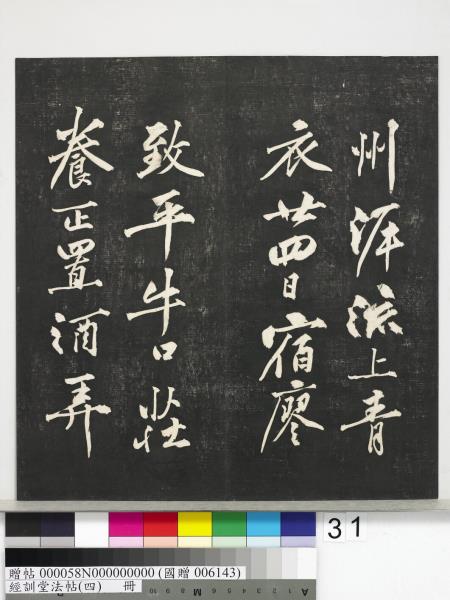 州泝流上青
衣廿四日宿廖
致平牛口莊
養正置酒弄
31
贈帖 000058N000000000 (國贈 006143)
經訓堂法帖(四) 冊